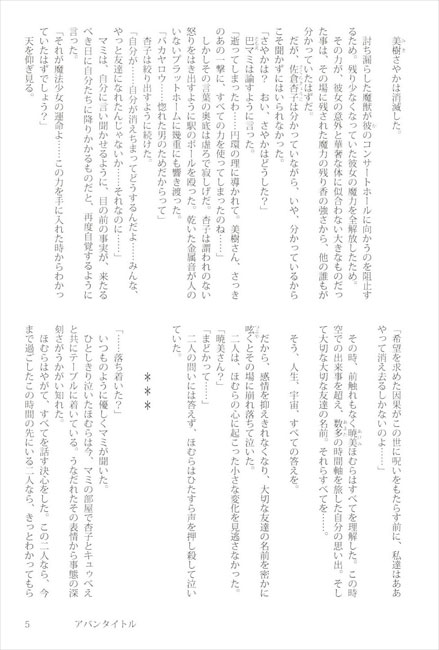 美樹さやかは消滅した。
討ち漏らした魔獣が彼のコンサートホールに向かうのを阻止す
るため。残り少なくなっていた彼女の魔力を全解放したため。
その力が、彼女の意外と華奢な体に似合わない大きなものだっ
た事は、その場に残された魔力の残り香の強さから、他の誰もが
分かっていたはずだ。
だが、佐倉杏子は分かっていながら、いや、分かっているから
こそ聞かずにはいられなかった。
「さやかは？　おい、さやかはどうした？」
巴マミは諭すように言った。
「逝ってしまったわ……円環の理に導かれて。美樹さん、さっき
のあの一撃に、すべての力を使ってしまったのね……」
しかしその言葉の奥底は虚ろで寂しげだ。杏子は謂われのない
怒りをはき出すように駅のポールを殴った。乾いた金属音が人の
いないプラットホームに幾重にも響き渡った。
「バカヤロウ……惚れた男のためだからって」
杏子は絞り出すように続けた。
「自分が……自分が消えちまってどうするんだよ……みんな、
やっと友達になれたんじゃないか……それなのに……」
マミは、自分に言い聞かせるように、目の前の事実が、来たる
べき日に自分たちに降りかかるものだと、再度自覚するように
天を仰ぎ見る。
「それが魔法少女の運命よ……この力を手に入れた時からわかっ
ていたはずでしょう？」
「希望を求めた因果がこの世に呪いをもたらす前に、私達はああ
やって消え去るしかないのよ……」
その時、前触れもなく暁美ほむらはすべてを理解した。この時
空での出来事を超え、数多の時間軸を旅した自分の思い出。そし
て大切な大切な友達の名前。それらすべてを……。
そう、人生、宇宙、すべての答えを。
だから、感情を抑えきれなくなり、大切な友達の名前を密かに
呟くとその場に崩れ落ちて泣いた。
二人は、ほむらの心に起こった小さな変化を見逃さなかった。
「暁美さん？」
「まどかって……」
二人の問いには答えず、ほむらはひたすら声を押し殺して泣い
ていた。
＊＊＊
「……落ち着いた？」
いつものように優しくマミが聞いた。
ひとしきり泣いたほむらは今、マミの部屋で杏子とキュゥべえ
と共にテーブルに着いている。うなだれたその表情から事態の深
刻さがうかがい知れた。
ほむらはやがて、すべてを話す決心をした。この二人なら、今
まで過ごしたこの時間の先にいる二人なら、きっとわかってもら
アバンタイトル
5